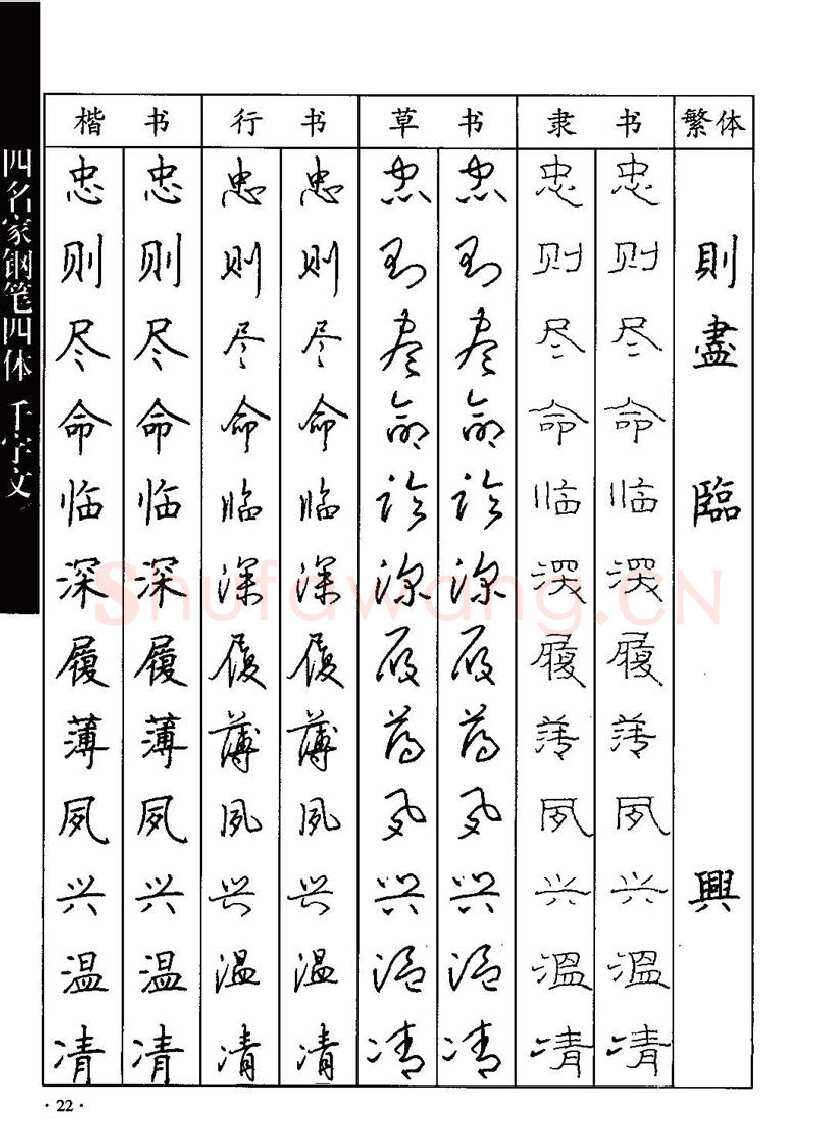 四名家钢笔四体 千字文
楷书 行书 草书 隶书 繁体
忠 忠 忠 忠 忠 忠 忠 忠
则 则 则 则 则 则 则 则 則
尽 尽 尽 尽 尽 尽 尽 尽 盡
命 命 命 命 命 命 命 命
临 临 临 临 临 临 临 临 臨
深 深 深 深 深 深 深 深
履 履 履 履 履 履 履 履
薄 薄 薄 薄 薄 薄 薄 薄
夙 夙 夙 夙 夙 夙 夙 夙
兴 兴 兴 兴 兴 兴 兴 兴 興
温 温 温 温 温 温 温 温
凊 凊 凊 凊 凊 凊 凊 凊
Shufawang.CN
·22·